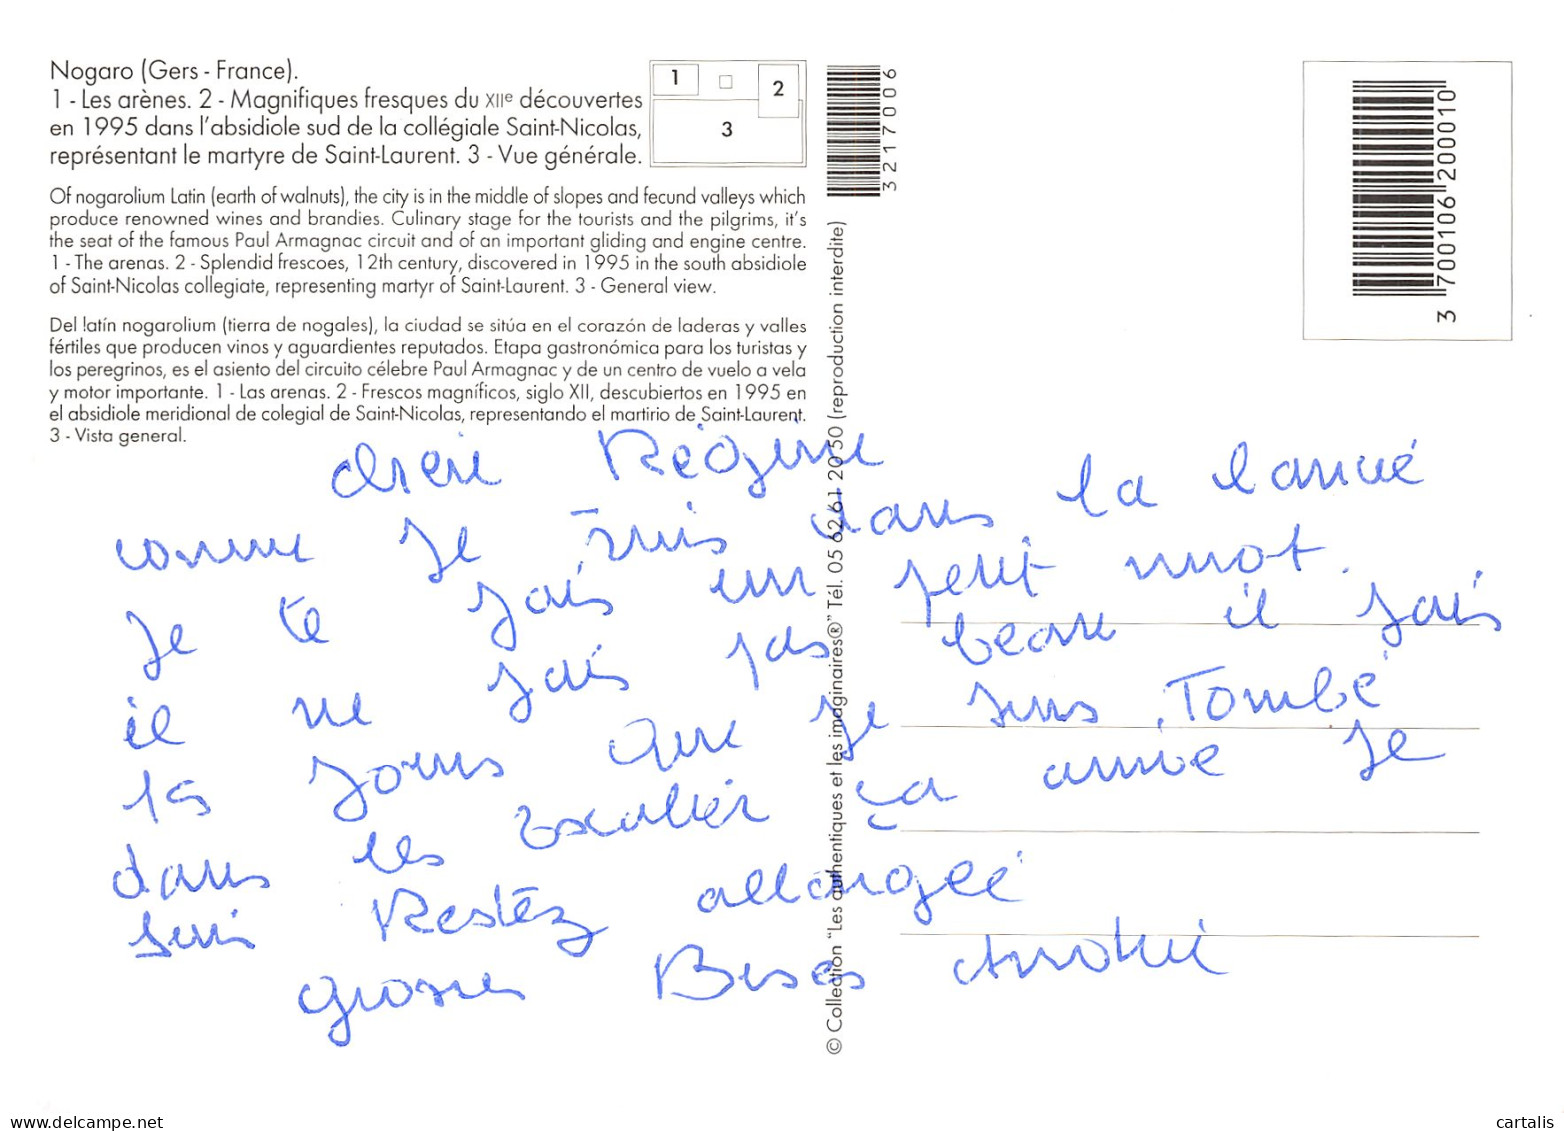 Nogaro (Gers - France).
1 - Les arènes. 2 - Magnifiques fresques du XIIe découvertes
en 1995 dans l'absidiole sud de la collégiale Saint-Nicolas,
représentant le martyre de Saint-Laurent. 3 - Vue générale.
1
2
3
Of nogarolium Latin (earth of walnuts), the city is in the middle of slopes and fecund valleys which
produce renowned wines and brandies. Culinary stage for the tourists and the pilgrims, it's
the seat of the famous Paul Armagnac circuit and of an important gliding and engine centre.
1 - The arenas. 2 - Splendid frescoes, 12th century, discovered in 1995 in the south absidiole
of Saint-Nicolas collegiate, representing martyr of Saint-Laurent. 3 - General view.
Del latín nogarolium (tierra de nogales), la ciudad se sitúa en el corazón de laderas y valles
fértiles que producen vinos y aguardientes reputados. Etapa gastronómica para los turistas y
los peregrinos, es el asiento del circuito célebre Paul Armagnac y de un centro de vuelo a vela
y motor importante. 1 - Las arenas. 2 - Frescos magníficos, siglo XII, descubiertos en 1995 en
el absidiole meridional de colegial de Saint-Nicolas, representando el martirio de Saint-Laurent.
3 - Vista general.
3217006
© Collection "Les authentiques et les imaginaires®" Tél. 05 62 61 20 50 (reproduction interdite)
3 700106 200010
Régine
comme je suis dans la
je te fais un petit mot.
il ne fais pas beau il fais
jours que je suis Tombé
dans les escalier ça je
suis Restéz allongée
grosses Bises
cartalis.net
cartalis